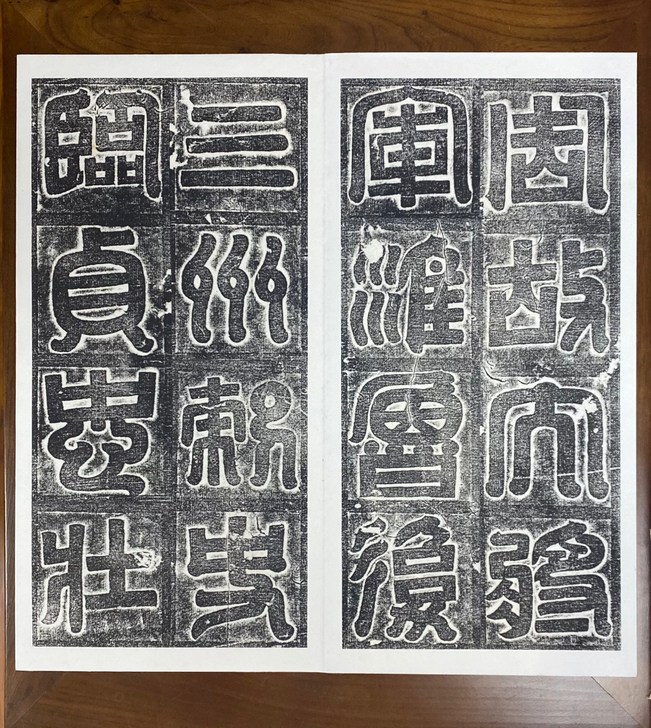 周故大將
軍淮魯復
三州刺史
臨貞忠壯